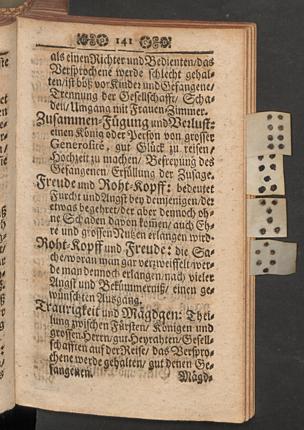 141
als einen Richter und Bedienten/das
Versprochene werde schlecht gehal-
ten/ist böß vor Kinder und Gefangene/
Trennung der Gesellschafft/ Scha-
den/Umgang mit Frauen-Zimmer.
Zusammen-Fügung und Verlust:
einen König oder Person von grosser
Generosité, gut Glück zu reisen/
Hochzeit zu machen/ Befreyung des
Gefangenen/ Erfüllung der Zusage.
Freude und Roht-Kopff: bedeutet
Furcht und Angst bey demjenigen/der
etwas begehret/der aber dennoch oh-
ne Schaden davon komen/ auch Eh-
re und grossen Nutzen erlangen wird.
Roht-Kopff und Freude: die Sa-
che/woran man gar verzweiffelt/wer-
de man dennoch erlangen/nach vieler
Angst und Bekümmerniß/ einen ge-
wünschten Ausgang.
Traurigkeit und Mägdgen: Thei-
lung zwischen Fürsten/ Königen und
grossen Herrn/gut Heyrahten/Gesell-
schafften auf der Reise/ das Verspro-
chene werde gehalten/ gut denen Ge-
fangenen.
Mägd-